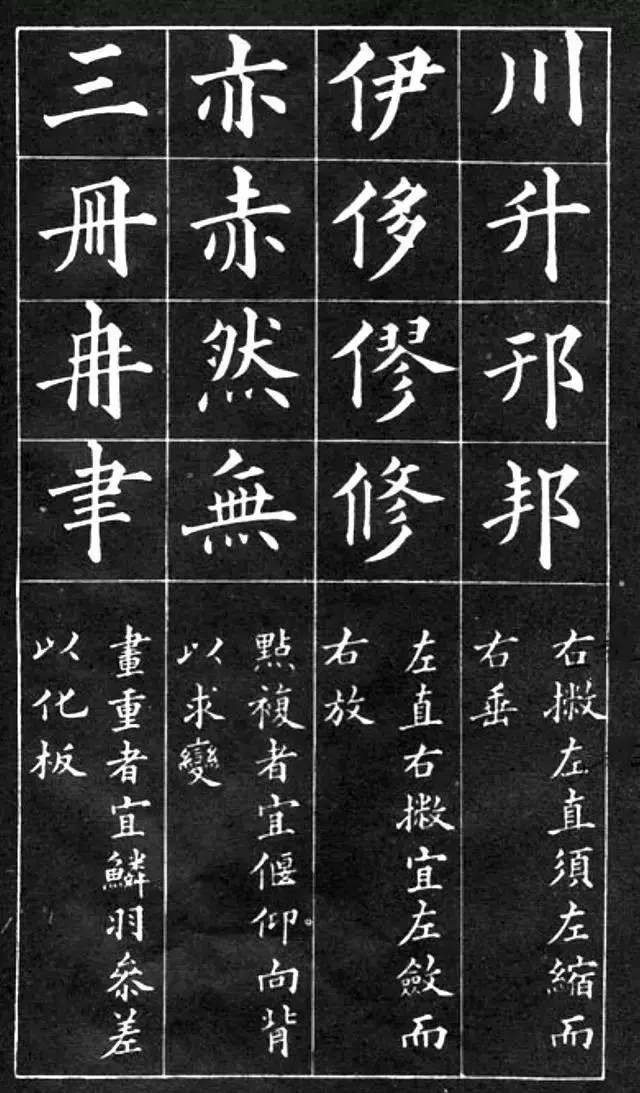 川升邢邦
右撇左直須左縮而
右垂
伊侈僇修
左直右撇宜左斂而
右放
亦赤然無
點複者宜偃仰向背
以求變
三冊冉聿
畫重者宜鱗羽參差
以化板